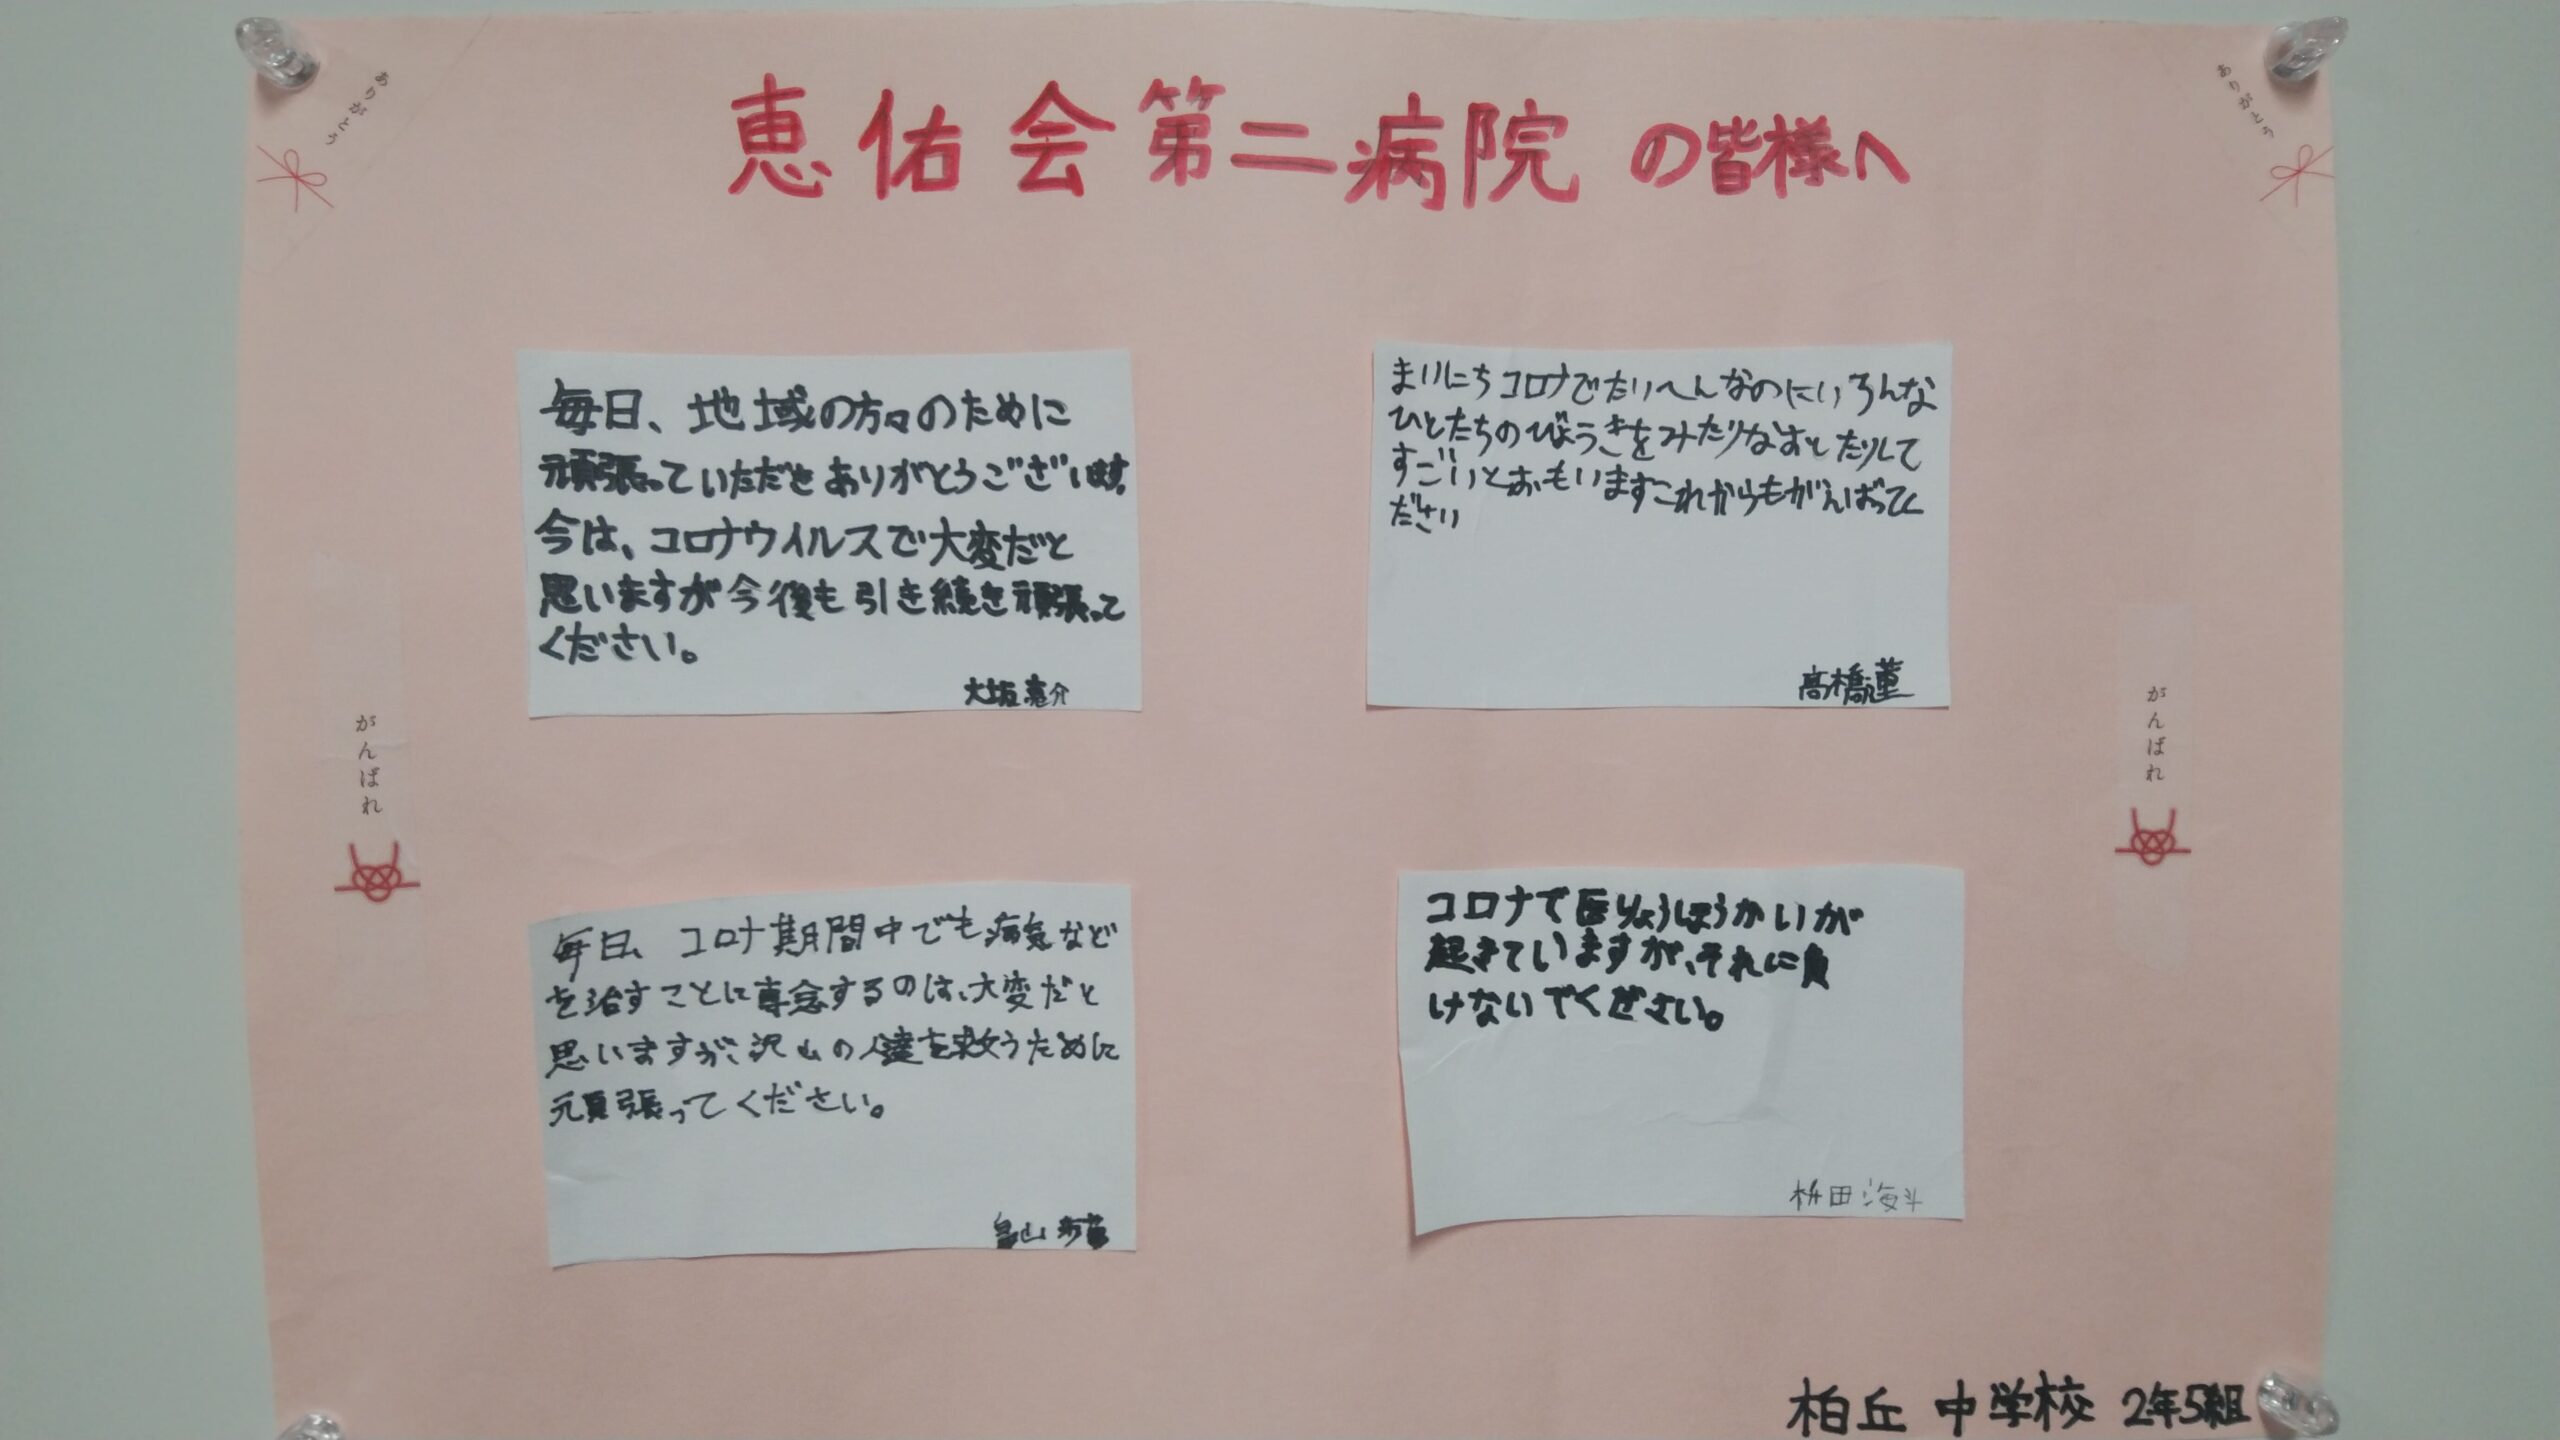 ありがとう
ありがとう
恵佑会第二病院の皆様へ
毎日、地域の方々のために
頑張っていただきありがとうございます。
今は、コロナウイルスで大変だと
思いますが今後も引き続き頑張って
ください。
大坂亮介
まいにちコロナでたいへんなのにいろんな
ひとたちのびょうきをみたりなおしたりして
すごいとおもいますこれからもがんばってく
ださい
高橋蓮
がんばれ
がんばれ
毎日、コロナ期間中でも病気など
を治すことに専念するのは、大変だと
思いますが、沢山の人達を救うために
頑張ってください。
畠山
コロナで医りょうほうかいが
起きていますが、それに負
けないでください。
桝田海斗
柏丘中学校 2年5組